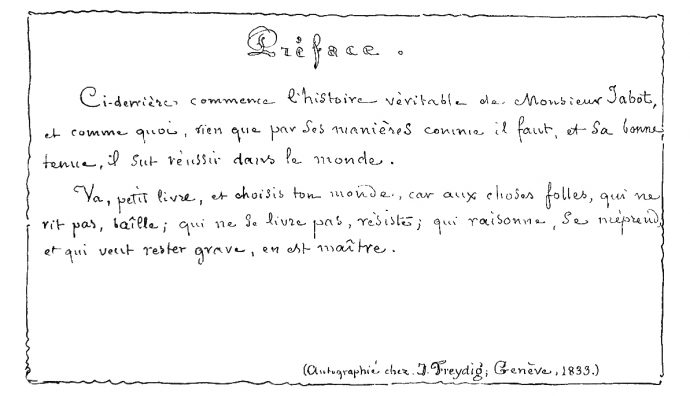 Préface.
Ci-derrière commence l'histoire véritable de Monsieur Jabot,
et comme quoi, rien que par ses manières comme il faut, et sa bonne
tenue, il sut réussir dans le monde.
Va, petit livre, et choisis ton monde, car aux choses folles, qui ne
rit pas, baîlle; qui ne se livre pas, résiste; qui raisonne, se méprend,
et qui veut rester grave, en est maître.
(Autographié chez J. Freydig, Genève, 1833.)